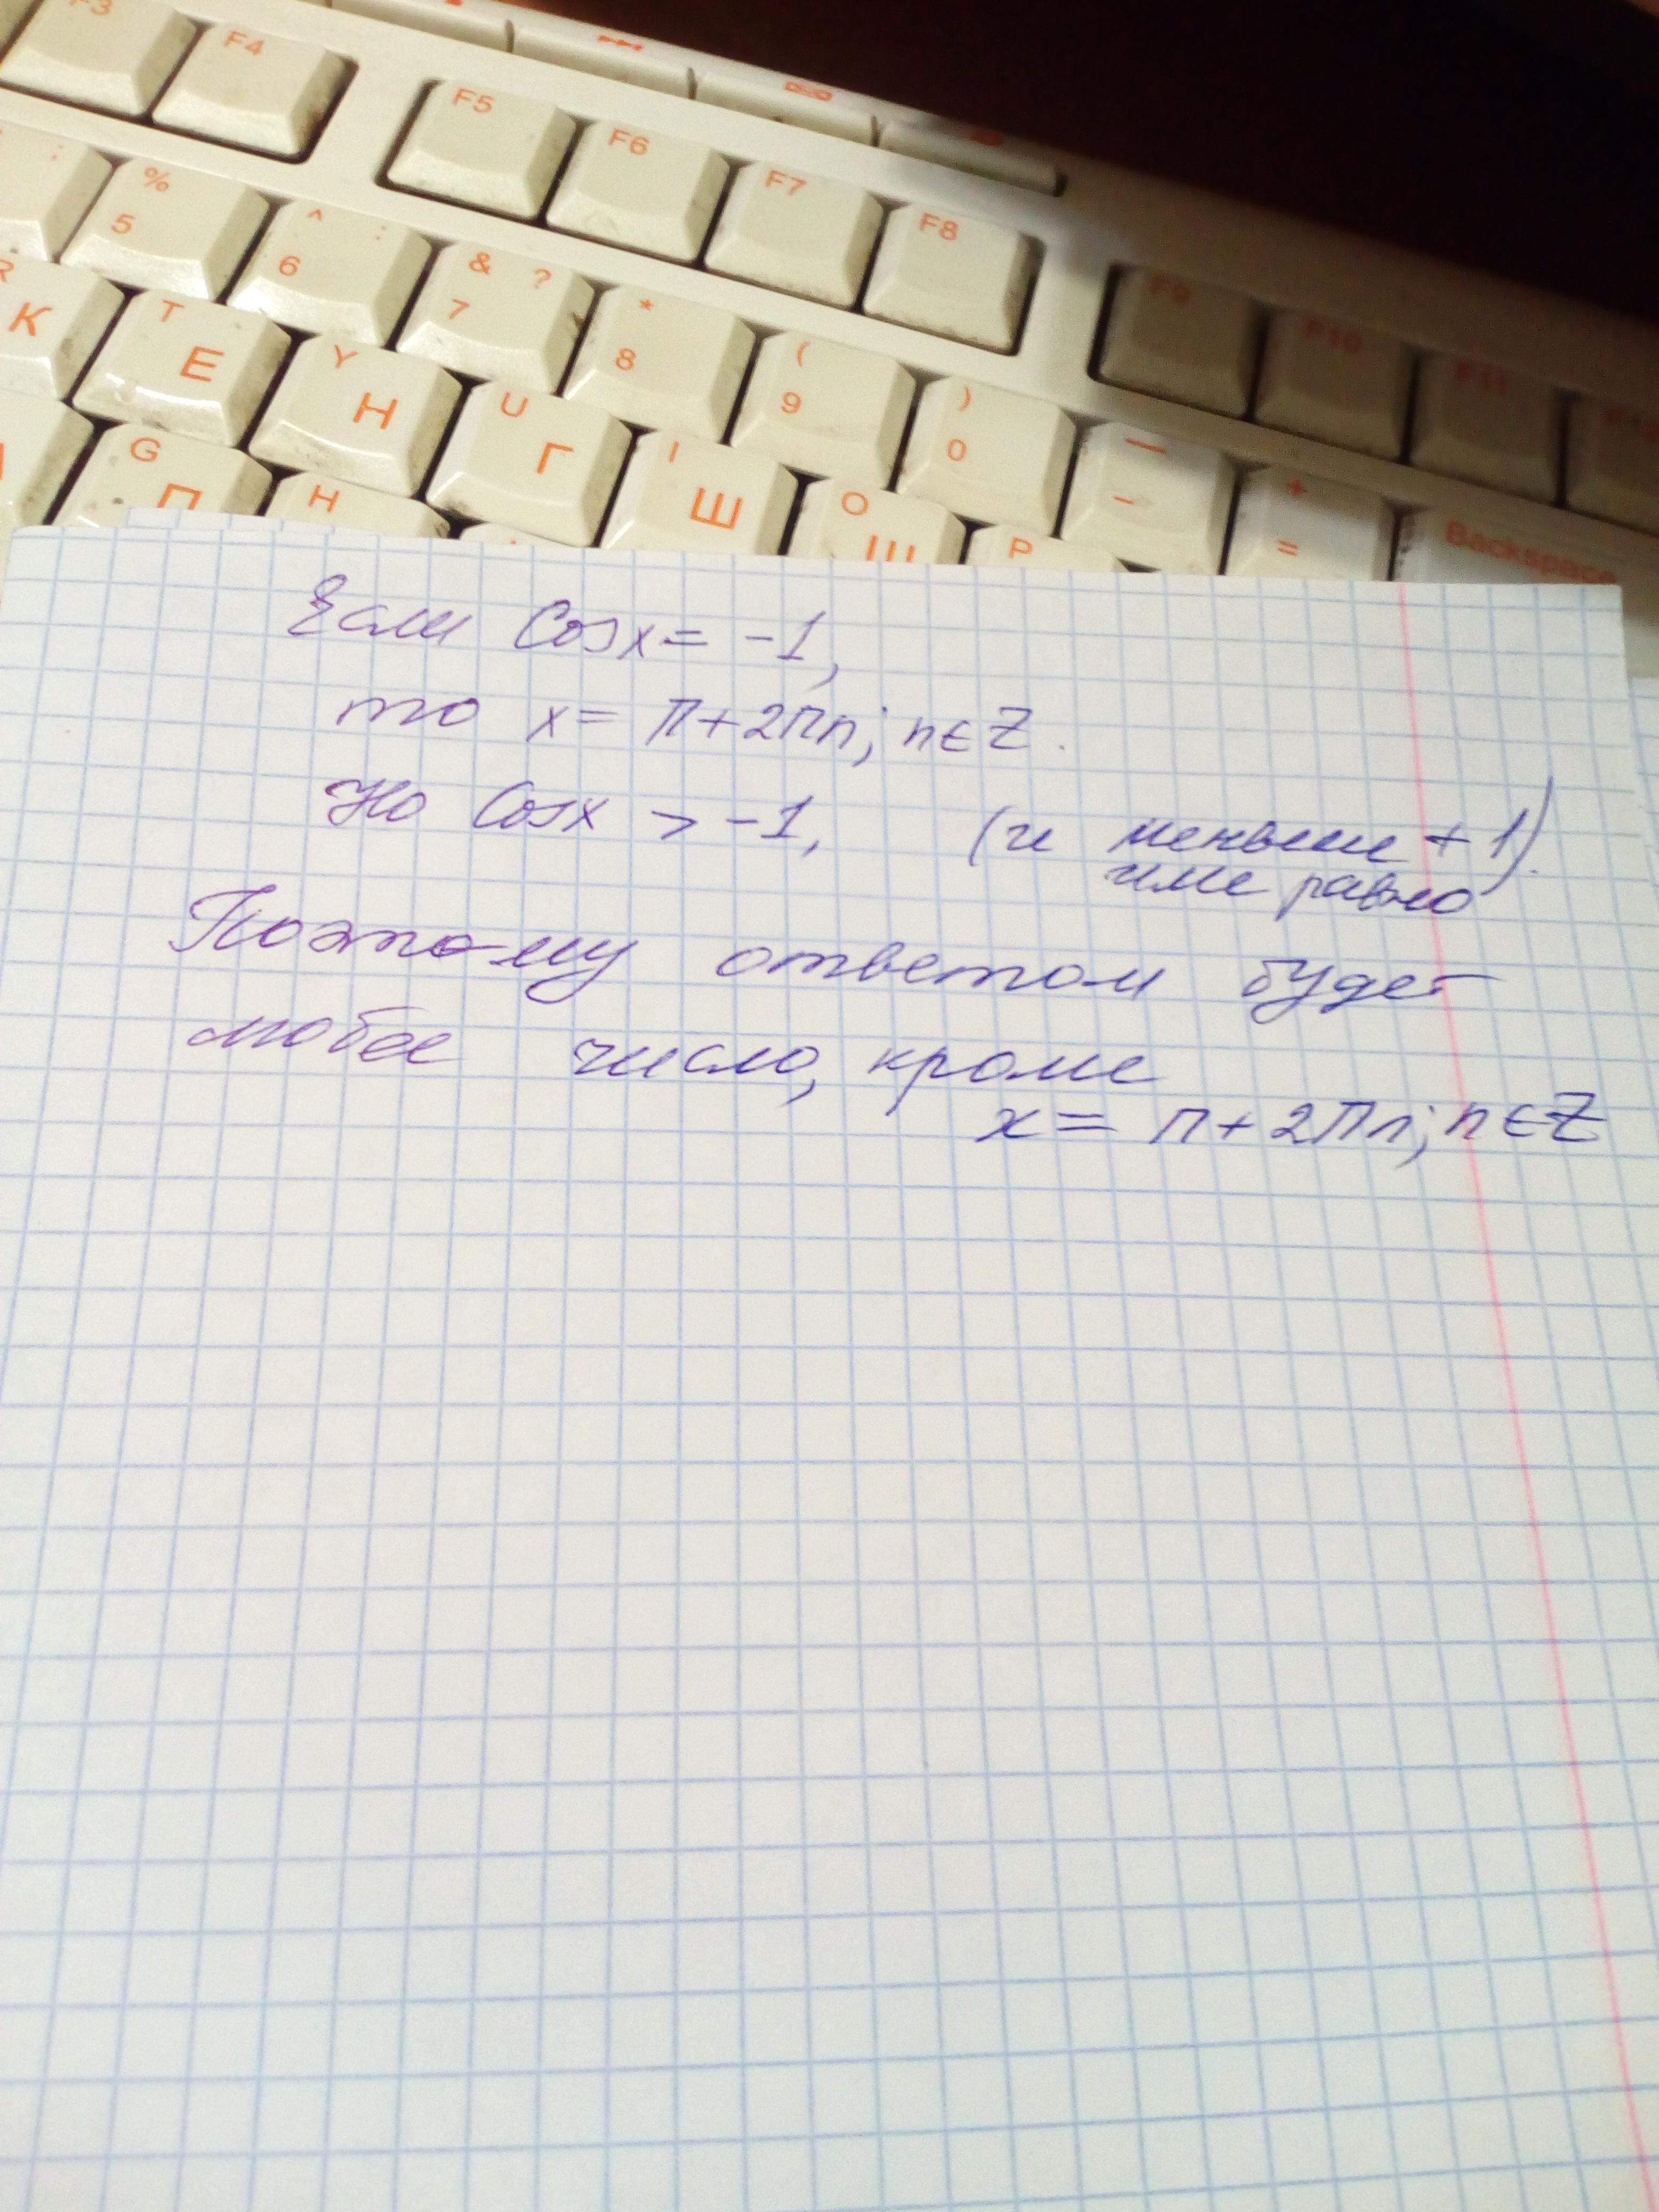 F3 F4 F5 F6 F7 F8 F9 F10 F11
% 5 ^ : 6 & ? 7 * 8 ( 9 ) 0 — - + = Backspace
R К T Е Y Н U Г I Ш O Щ P
G П H
Если Cosx = -1,
то x = π+2πn; n∈Z.
Но Cosx > -1, (и меньше +1)
или равно
Поэтому ответом будет
любое число, кроме
x = π+2πn; n∈Z